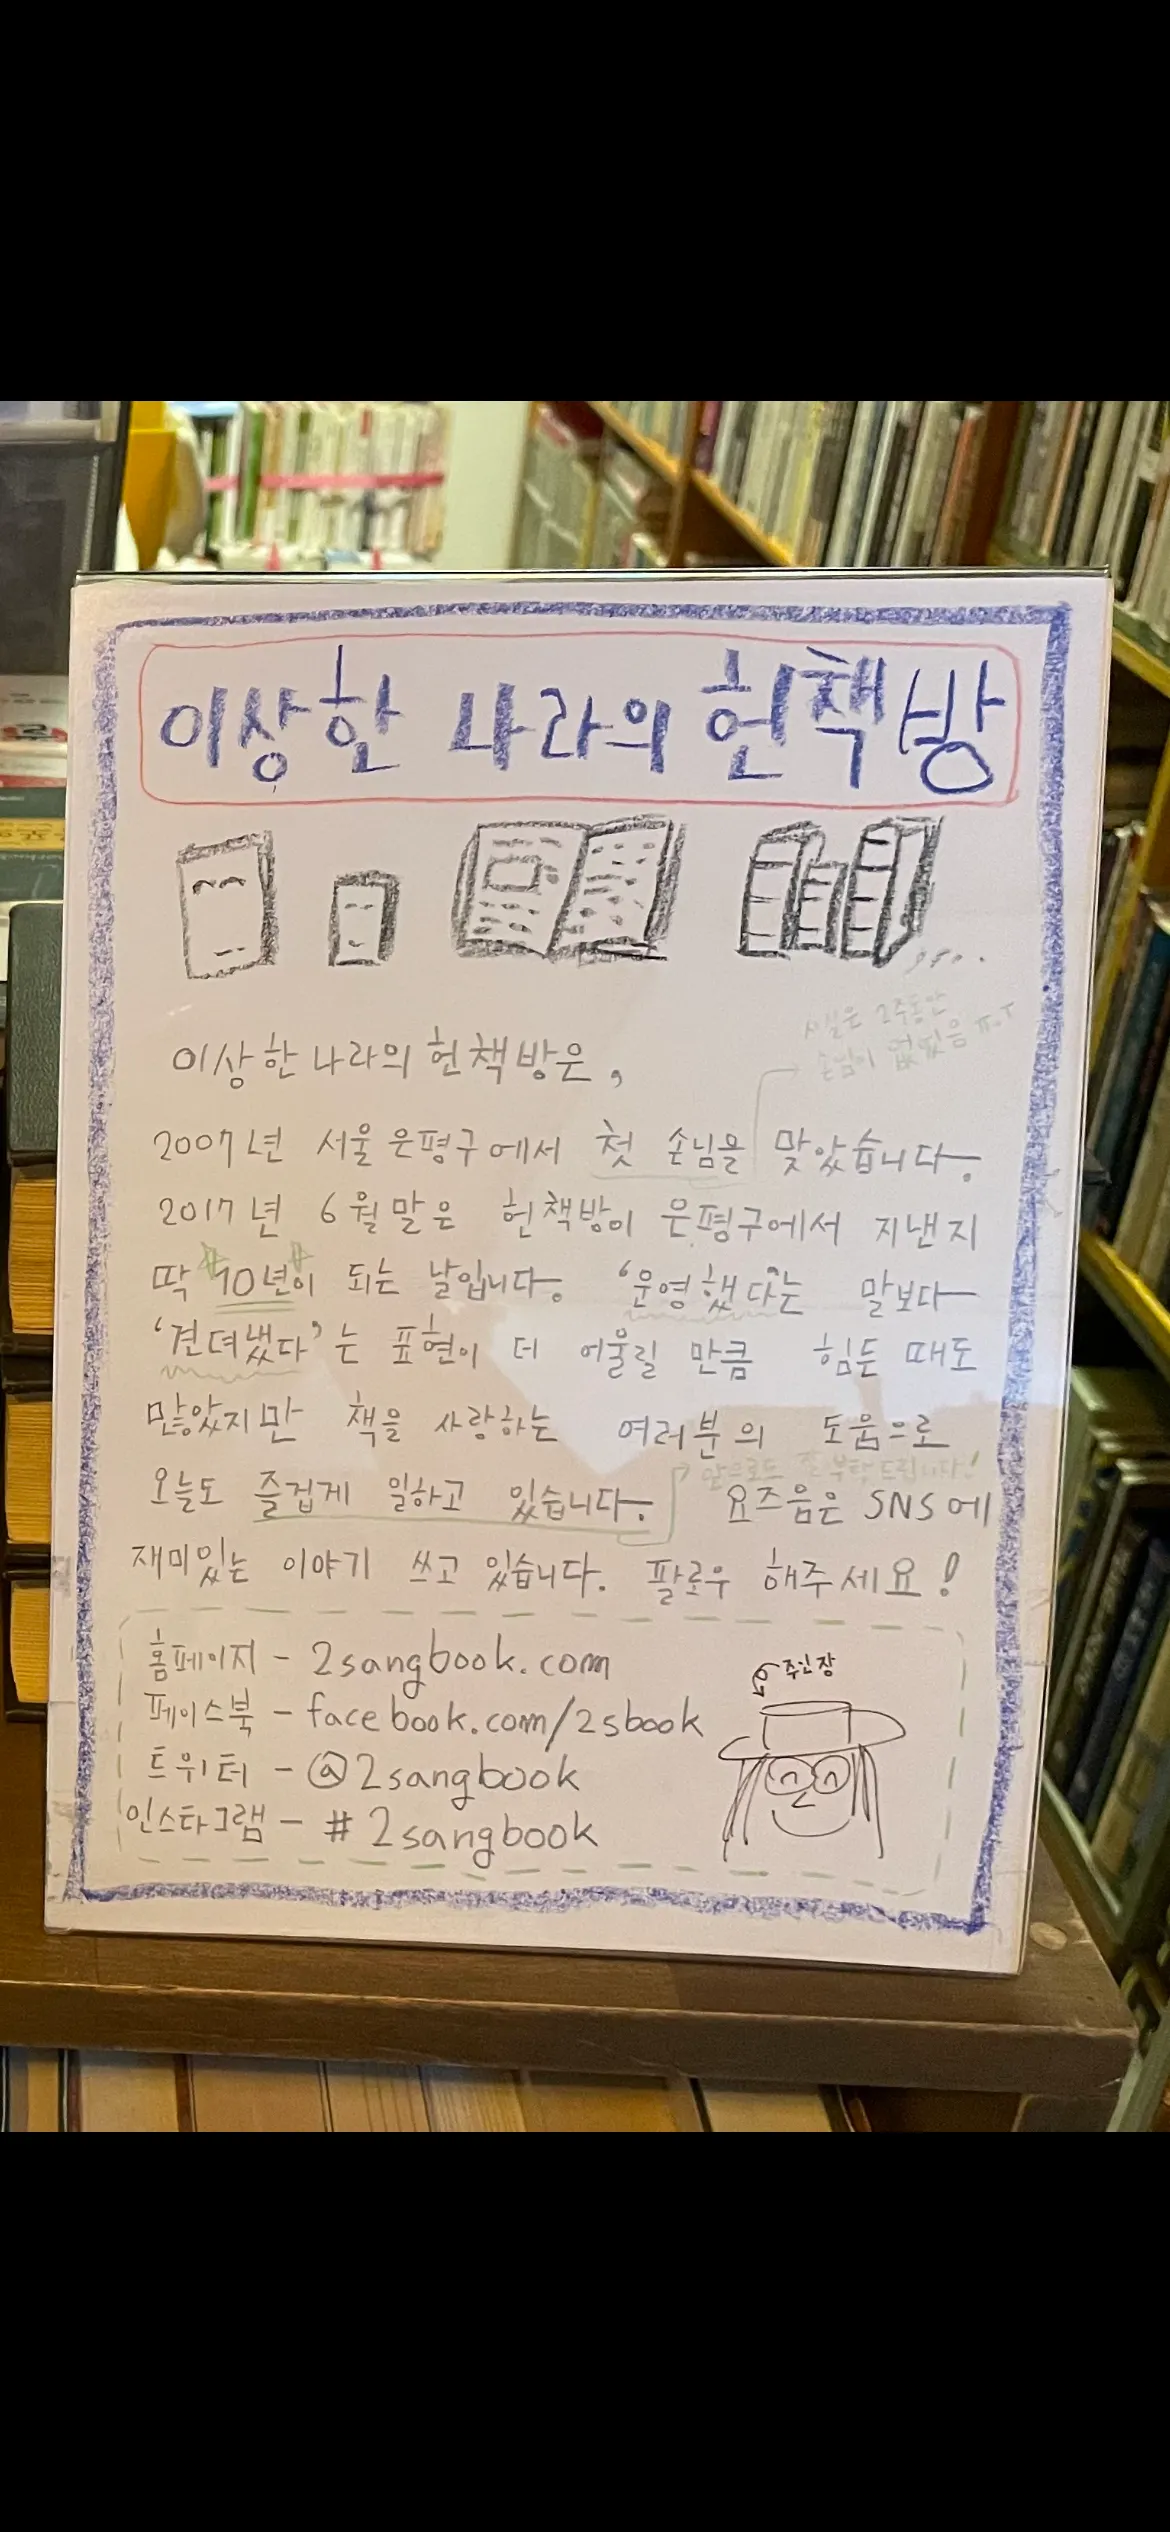 이상한 나라의 헌책방
사실은 2주동안
손님이 없었음 ㅠ.ㅜ
이상한나라의 헌책방은,
2007년 서울은평구에서 첫 손님을 맞았습니다.
2017년 6월말은 헌책방이 은평구에서 지낸지
딱 10년이 되는 날입니다. '운영했다'는 말보다
'견뎌냈다'는 표현이 더 어울릴 만큼 힘든 때도
많았지만 책을 사랑하는 여러분의 도움으로
오늘도 즐겁게 일하고 있습니다.
앞으로도 잘 부탁드립니다!
요즈음은 SNS에
재미있는 이야기 쓰고 있습니다. 팔로우 해주세요!
홈페이지 - 2sangbook.com
페이스북 - facebook.com/2sbook
트위터 - @2sangbook
인스타그램 - #2sangbook
주인장